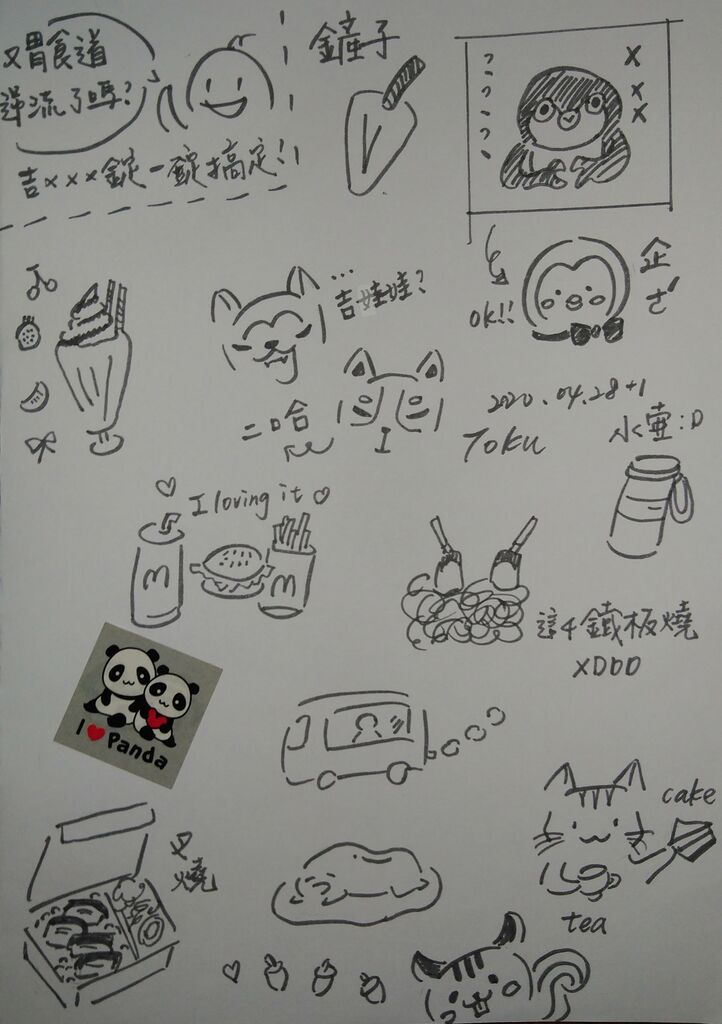 又胃食道
逆流了嗎?
吉×××錠一錠搞定!!
鏟子
×
×
×
ok!!
企さ
...
吉娃娃?
二哈
2020.04.28+1
Toku
水壺:D
I loving it
m
m
這4鐵板燒
XDDD
I Panda
cake
tea
叉燒